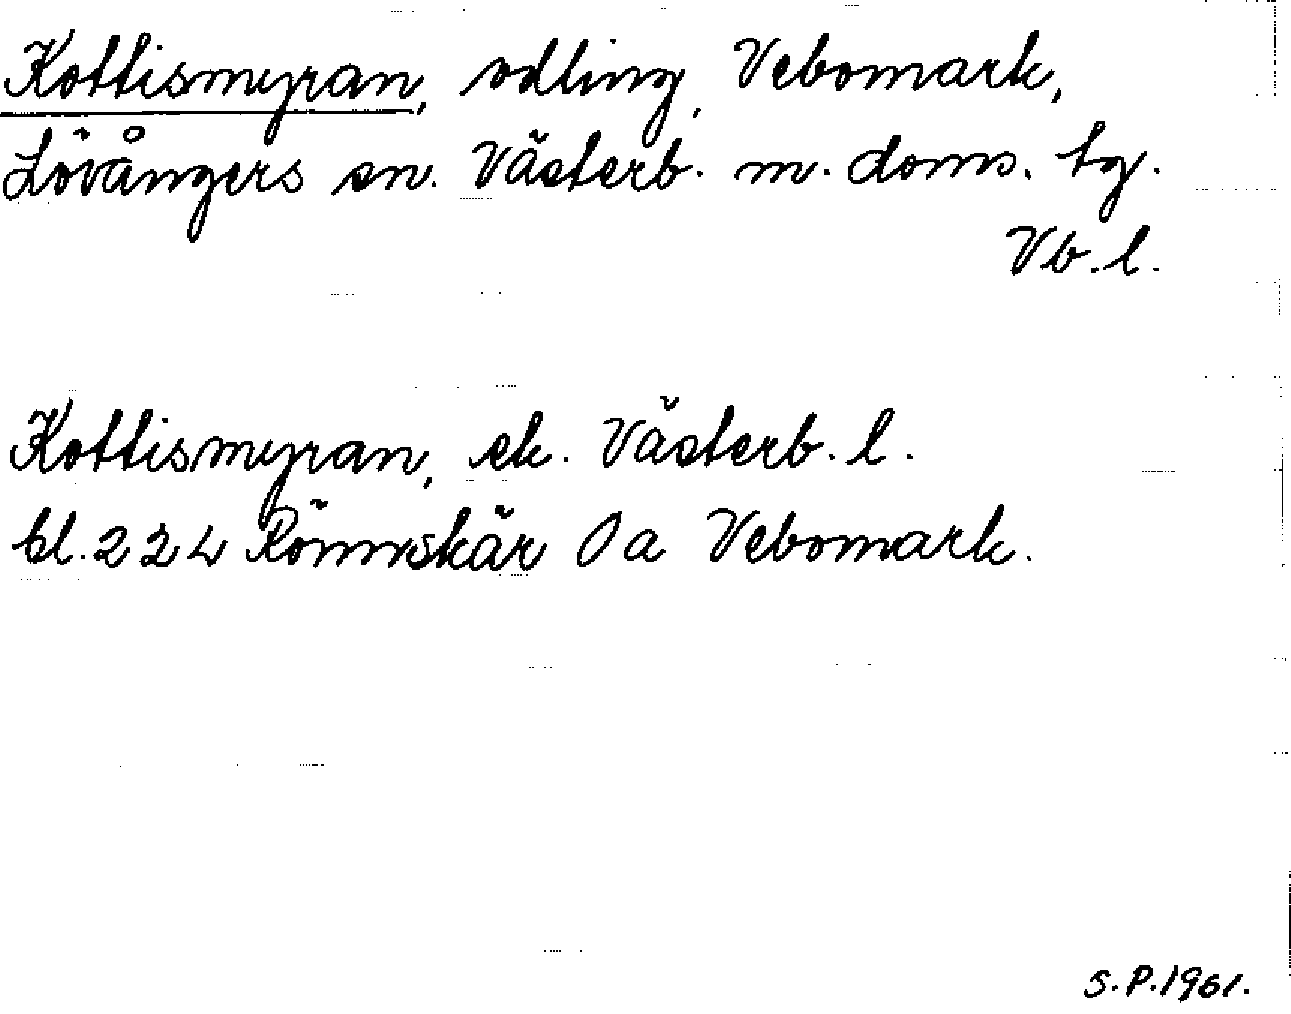 Kottismyran, odling, Vebomark,
Lövångers sn. Västerb. m. doms. tg.
Vb. l.
Kottismyran, ek. Västerb. l.
bl. 224 Rönnskär Oa Vebomark.
S. P. 1961.